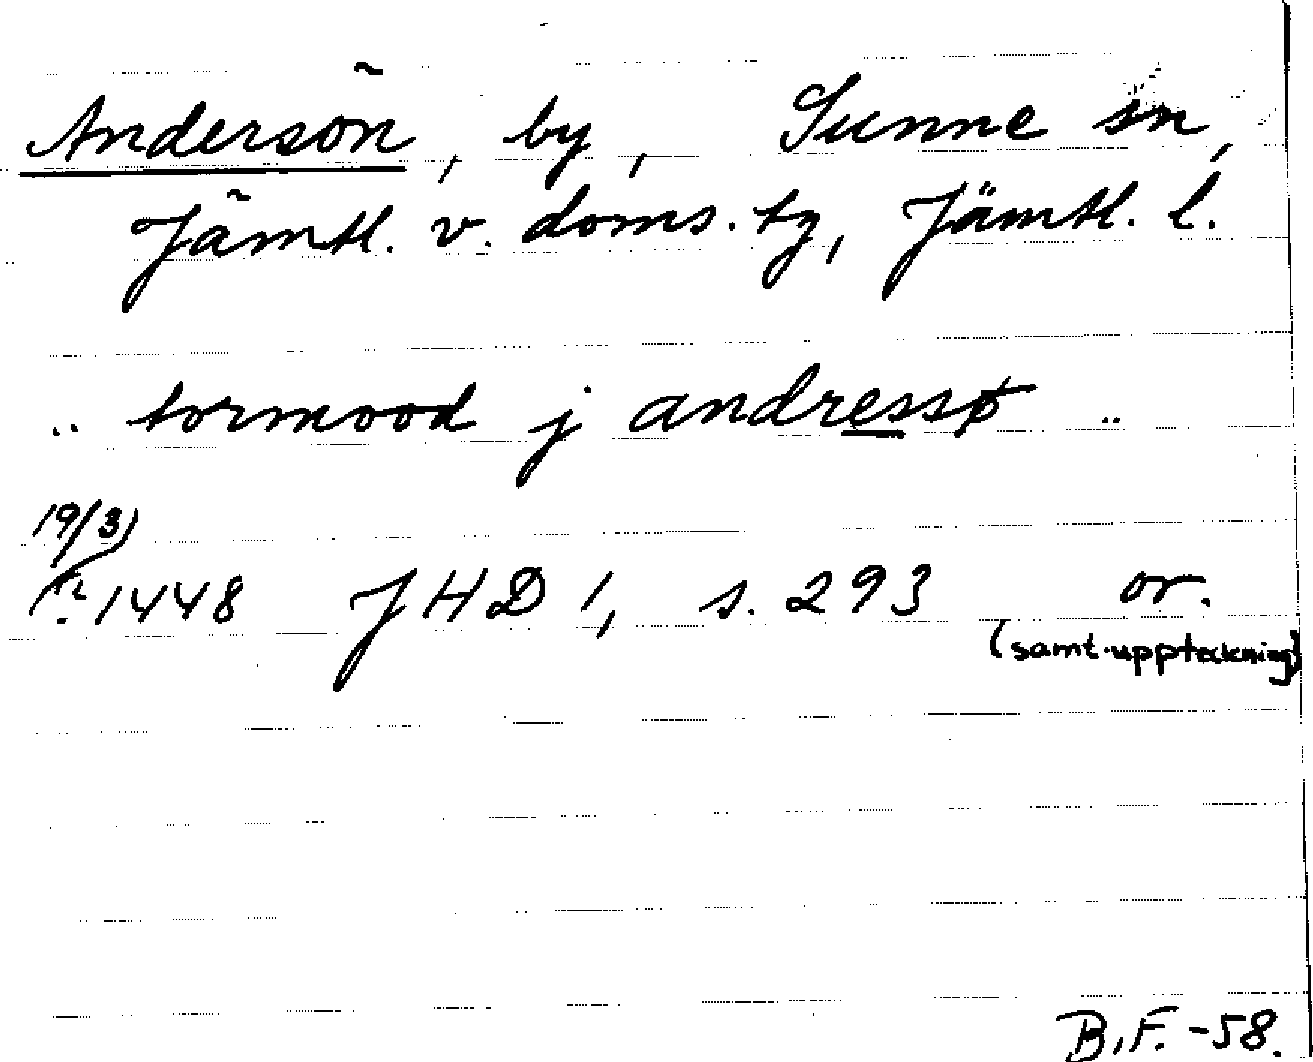 Andersön, by, Sunne sn,
Jämtl. v. doms. tg, Jämtl. l.
.. tormood j andressø ..
19/3
1448 JHD 1, s. 293 or.
(samt. uppteckning)
B.F. -58.